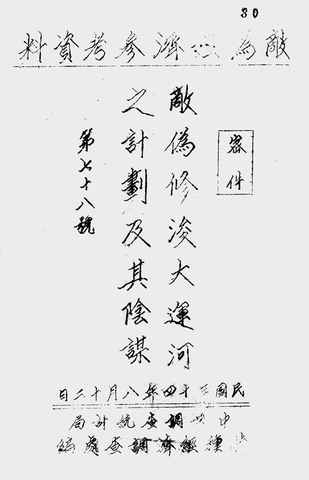 30
敵偽經濟參考資料
密件
敵偽修浚大運河
之計劃及其陰謀
第七十八號
民國三十四年八月十二日
中央調查統計局
特種經濟調查處編